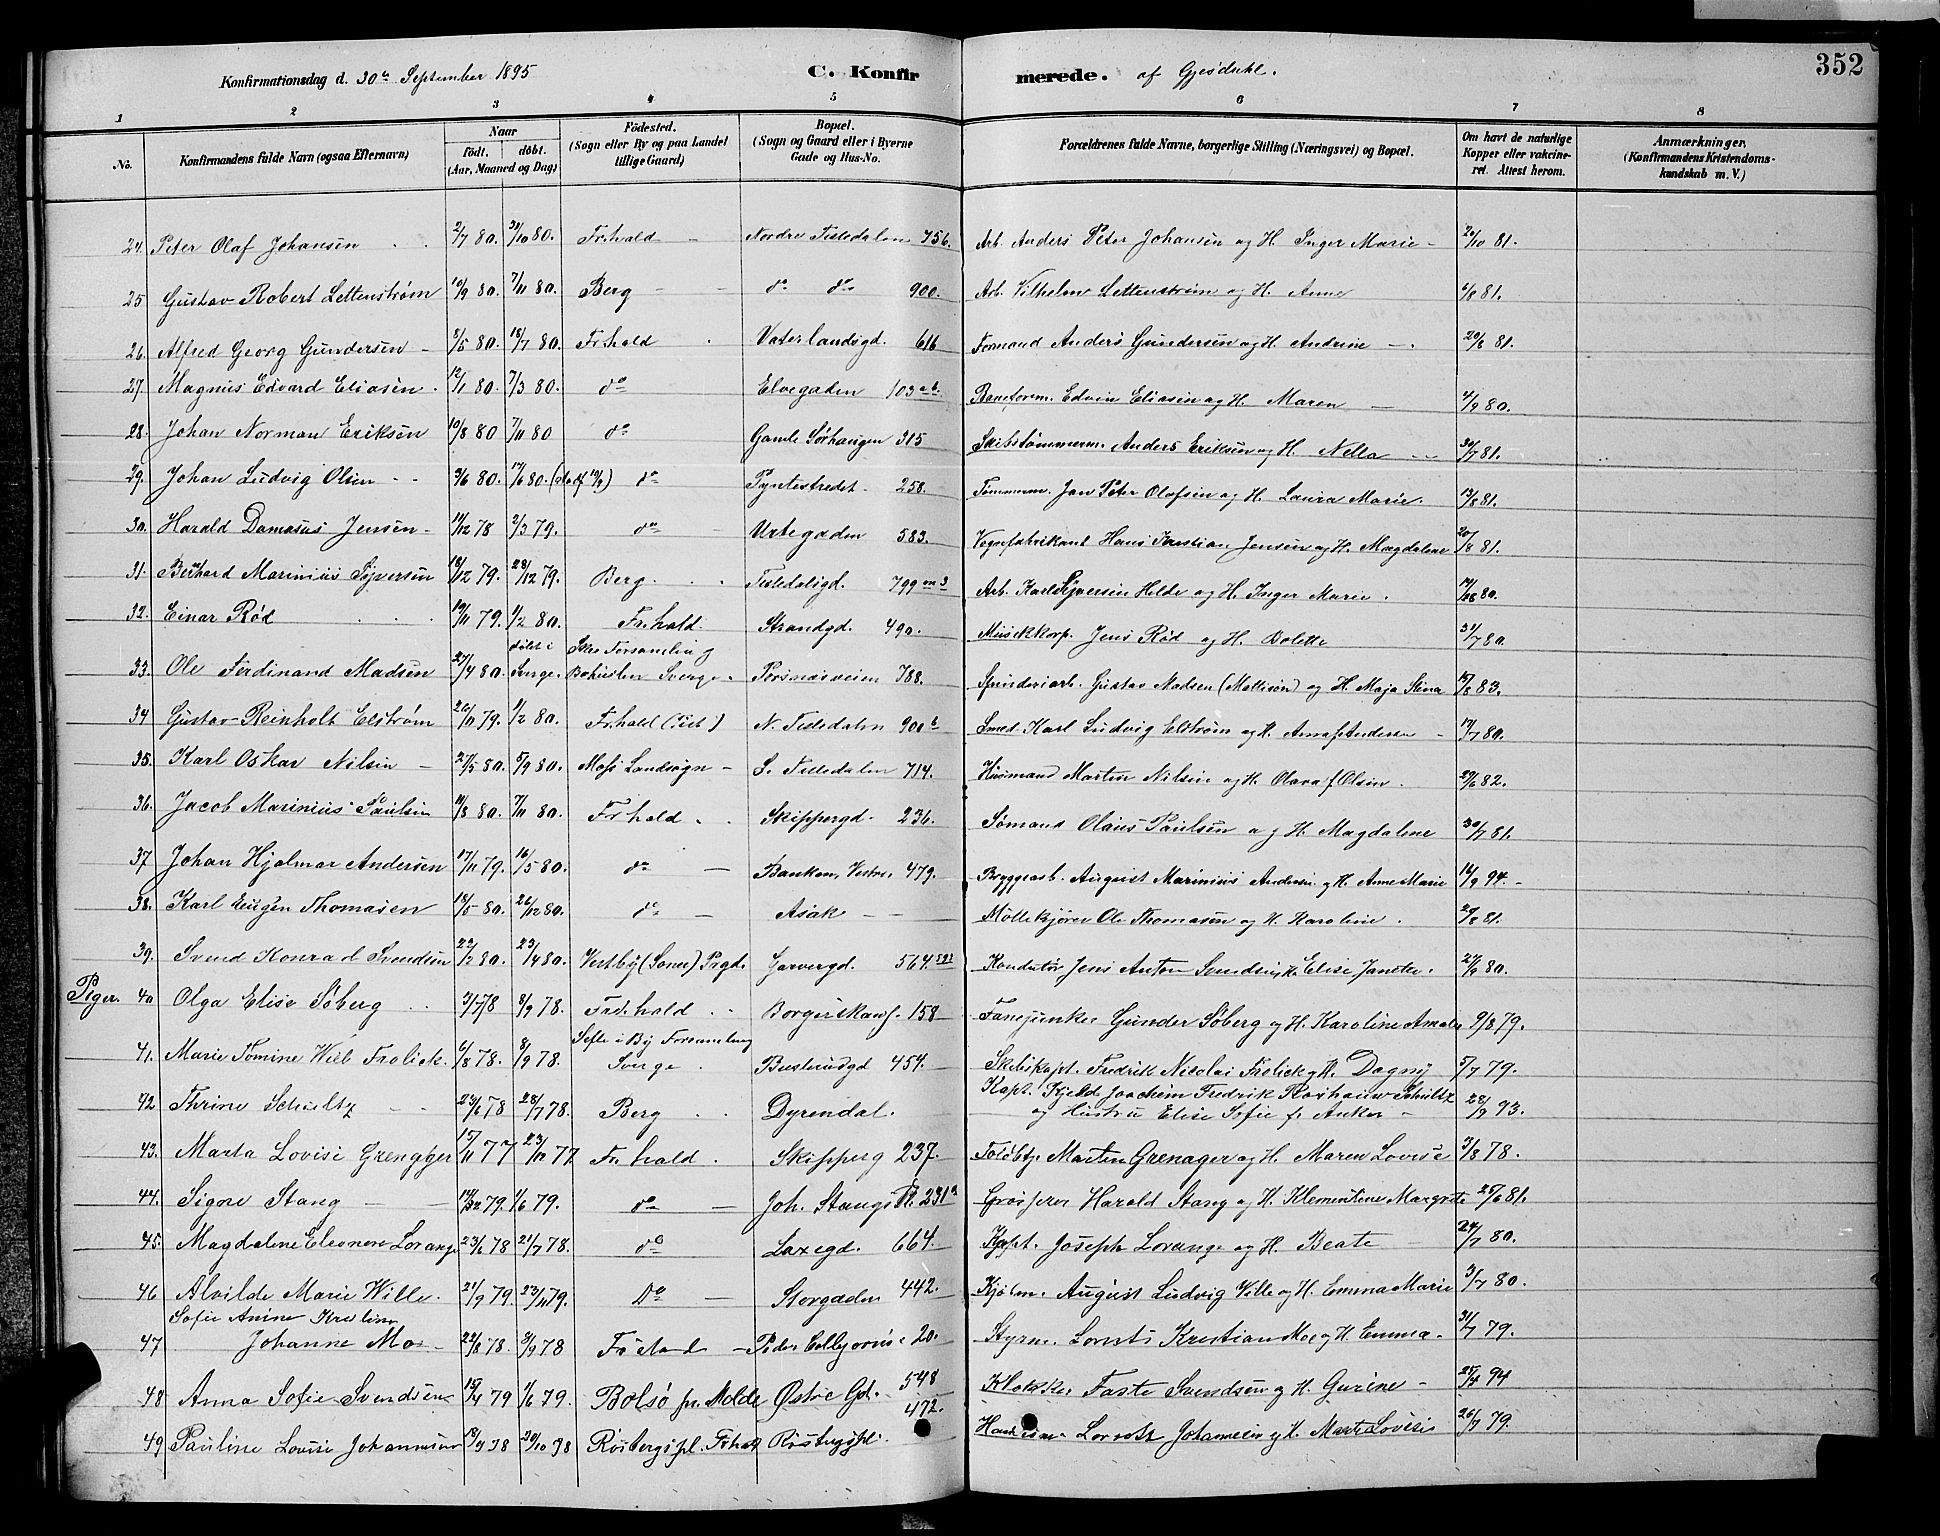 352
Konfirmationsdag d. 30te September 1895 C. Konfirmerede. af Gjesdahl.
1 2 3 4 5 6 7 8
No. Konfirmandens fulde Navn (ogsaa Efternavn) Naar födt. döbt. (Aar, Maaned og Dag) Födested. (Sogn eller By og paa Landet tillige Gaard) Bopæl. (Sogn og Gaard eller i Byerne Gade og Hus-No. Forældrenes fulde Navne, borgerlige Stilling (Næringsvei) og Bopæl. Om havt de naturlige Kopper eller vakcineret. Attest herom. Anmærkninger. (Konfirmandens Kristendomskundskab m. V.)
24. Peter Olaf Johansen 2/7 80. 31/10 80. Fr.hald Nordre Tistedalen 756. Arb. Anders Peter Johansen og H. Inger Marie 20/10 81.
25 Gustav Robert Lettenstrøm 10/9 80. 7/11 80. Berg do do 900. Arb. Vilhelm Lettenstrøm og H. Anne 6/8 81.
26. Alfred Georg Gundersen 5/5 80. 18/7 80. Fr.hald Vaterlandsgd. 616 Formand Anders Gundersen og H. Andrine 20/8 81.
27. Magnus Edvard Eliasen 12/1 80. 7/3 80. do Elvegaden 103 a b. Baneform. Edvin Eliasen og H. Maren 4/9 80.
28. Johan Norman Eriksen 10/8 80 7/11 80 do Gamle Sørhaugen 315 Skibstømmerm. Anders Eriksen og H. Nella 30/7 81.
29. Johan Ludvig Olsen 9/6 80. 17/6 80. do Pyntestredet 258. Tømmerm. Jan Peter Olafsen og H. Laura Marie. 13/8 81.
30. Harald Damasus Jensen 11/12 78 2/3 79. do Urtegaden 583. Vognfabrikant Hans Kristian Jensen og H. Magdalene 20/8 81.
31. Bernhard Marinius Syversen 18/12 79. 28/12 79. Berg. Tistedalsgd. 799 m 3 Arb. Karl Syversen Helde og H. Inger Marie. 80.
32. Einar Rød 19/11 79. 1/2 80. Fr.hald. Strandgd. 490. Musikkorp. Jens Rød og H. Bolette 31/7 80.
33. Ole Ferdinand Madsen 27/4 80. døbt i Sverge. Skee Forsamling Bohuslen Sverge. Torsnæsveien 788. Spinderiarb. Gustav Madsen (Mattison) og H. Maja Stina 83.
34 Gustav Reinholt Elstrøm 26/11 79. 1/2 80. Fr.hald N. Tistedalen 900 b Smed Karl Ludvig Elstrøm og H. Anna f Andersen 17/7 80.
35. Karl Oskar Nilsen 27/5 80. 5/9 80. Moss Landsogn S. Tistedalen 714. Husmand Martin Nilsen og H. Olava f Olsen. 29/6 82.
36. Jacob Marinius Paulsen 11/8 80. 7/11 80. Fr.hald Skippergd. 236. Sømand Olaus Paulsen og H. Magdalene 30/7 81.
37 Johan Hjalmar Andersen 17/11 79. 16/5 80. do Banken, Vestre 479. Bryggearb. August Marinius Andersen og H. Anne Marie 16/9 94.
38. Karl Eugen Thomasen 18/5 80. 26/12 80. do Asak Møllekjører Ole Thomasen og H. Karoline. 81.
39. Svend Konrad Svendsen 22/2 80. 23/4 80. Vestby (Soner) Prgd. Garvergd. 564. Konduktør Jens Anton Svendsen H. Elise Janette. 80.
Piger. 40 Olga Elise Søberg 3/7 78 8/9 78. Fredr.hald Borgerskans. 158 Fanejunker Gunder Søberg og H. Karoline Amalie 9/8 79.
41. Marie Tomine Wilb Frolich. 6/8 78. 8/9 78. Sefle i By Forsamling Sverge. Busterudgd 454. Skibskapt. Fredrik Nicolai Frolich og H. Dagny 5/7 79.
42 Thrine Schultz 23/6 78 28/7 78. Berg Dyrendal. Kapt. Kjeld Joachim Fredrik Schultz og Hustru Elise Sofie f. Anker 28/9 93.
43. Marta Lovise Grengger 15/11 77 23/12 77 Fr.hald. Skipperg 237. Toldbtj. Martin Grenager og H. Maren Lovise 3/8 78.
44. Signe Stang 79. 1/6 79. do Joh. Stangs Pl. 231 a Grosserer Harald Stang og H. Klementine Margrete 25/6 81.
45. Magdalene Eleonora Lorange 23/6 78 21/7 78. do Laxegd. 664. Kapt. Joseph Lorange og H. Beate 24/7 80.
46 Alvilde Marie Wille. 21/9 79. 23/11 79. Do Storgaden 442. Kjøbm. August Ludvig Wille og H. Emma Marie 3/7 80.
47 Sofie Anine Kristine Johanne Moe 22/6 78. 3/9 78 Fr.stad Peder Colbjørns. 20. Styrm. Lorents Kristian Moe og H. Emma. 31/7 79.
48 Anna Sofie Svendsen 15/4 79 1/6 79. Bolsø pr. Molde Østre Gd. 548 Klokker Faste Svendsen og H. Gurine 94
49 Pauline Lovise Johannesen 18/9 78 20/10 78 Røsbergspl. Fr.hald Røsbergspl. 472. Lorentz Johannesen og H. Marte Lovise 26/7 79.